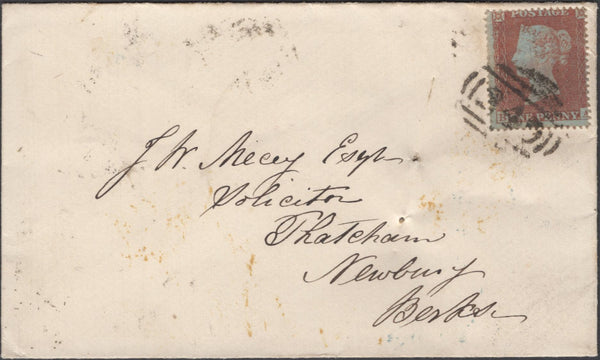 POSTAGE
ONE PENNY
J. W. Mecey Esqr
Solicitor
Thatcham
Newbury
Berks